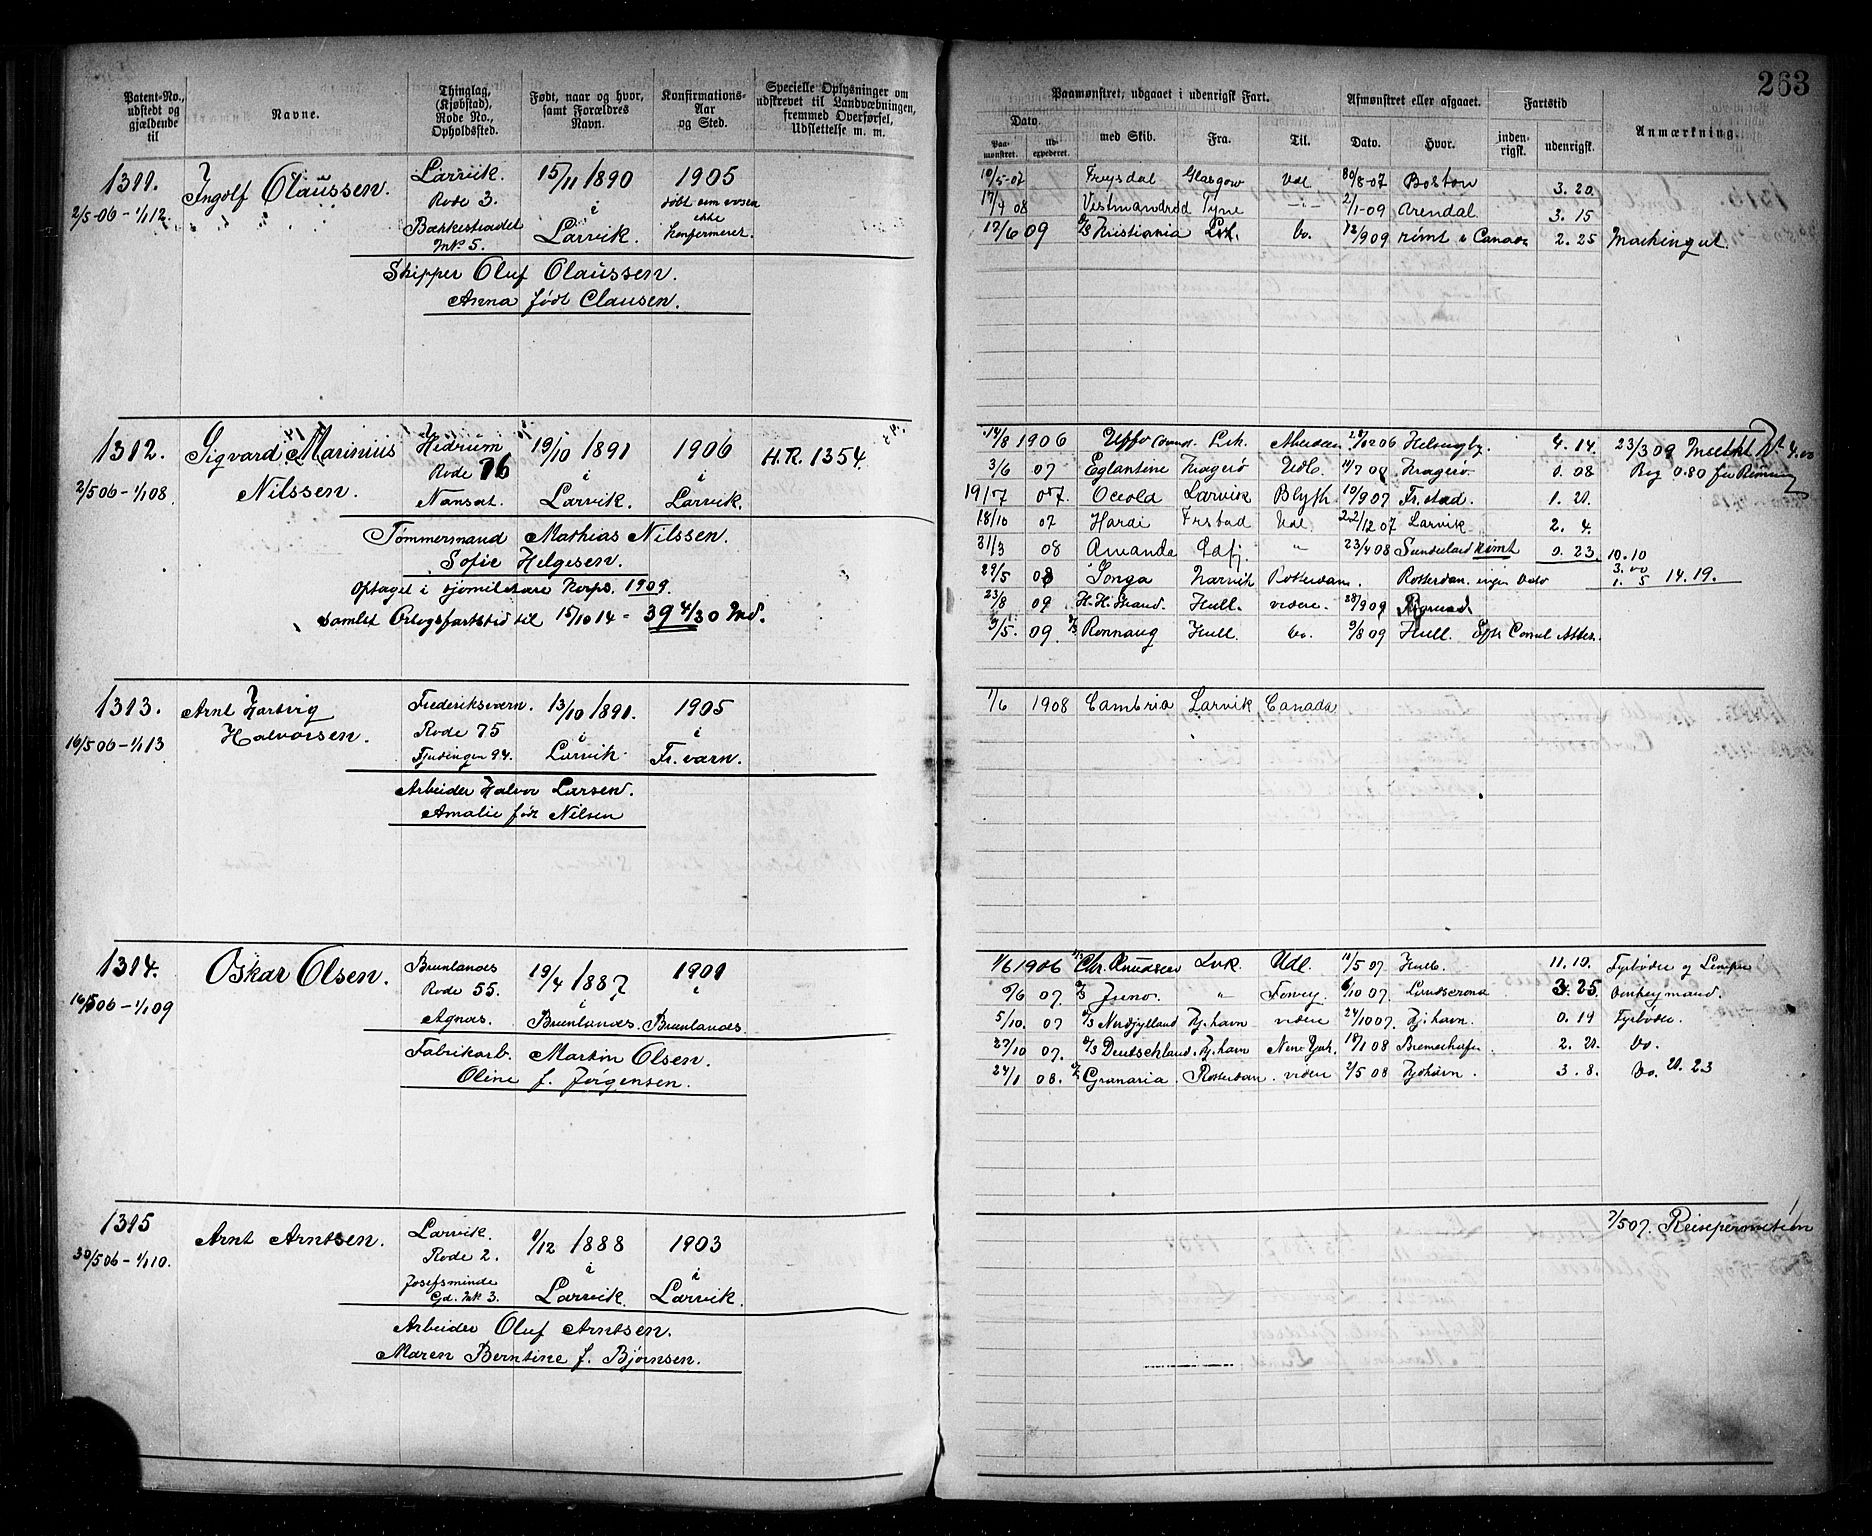 263
Patent-No., udstedt og gjældende til
Navne.
Thinglag, (Kjøbstad), Rode No., Opholdssted.
Født, naar og hvor, samt Forældres Navn.
Konfirmations-Aar og Sted.
Specielle Oplysninger om udskrevet til Landværbningen, fremmed Overførsel, Udslettelse m. m.
Paamønstret, udgaaet i udenrigsk Fart.
Dato.
Paamønstret.
Udexpederet.
med Skib.
Fra.
Til.
Afmønstret eller afgaaet.
Dato.
Hvor.
Fartstid
indenrigsk.
udenrigsk.
Anmærkning.
1311. Ingolf Claussen. Larvik. 15/11 1890 1905
2/5-06 - 1/1 12. Rode 3. i døbt
Bækkestrædet Larvik. ikke
Mk. 5. konfirmeret.
Skipper Oluf Claussen.
Anna født Clausen.
10/5-07 Freysdal Glasgow Udl 30/8-07 Boston 3. 20.
17/9 08 Tyne 2/1-09 Arendal. 3. 15
17/6 09 Kristiania Do. 12/9 09 rømt i Canada 2. 25
1312. Sigvard Marinius Hedrum 19/10 1891 1906 H.R. 1354.
2/5 06 - 1/1 08. Nilssen. Rode 76 i i
Nanset. Larvik. Larvik.
Tømmermand Mathias Nilssen.
Sofie Helgesen.
Optaget i sjømilitære Korps. 1909.
Samlet Orlogsfartstid til 15/10 14 = 39 4/30 Md.
14/8 1906 Uffo Lvk. Aberdeen 06 Helsingby. 4. 14. 23/3 09
3/6 07 Eglantine Kragerø Udl. Kragerø 0. 08 Bog 0.80 for Rømning
07. Larvik Blyth 10/9 07 Fr. stad. 1. 21.
18/10 07 Hardi Frstad Udl 22/12 07 Larvik 2. 4.
31/3 08 Amanda " 23/4 08 Sunderland rømt 0. 23. 10. 10
29/5 08 Songa Narvik Rotterdam. Rotterdam. ingen Dato 1. 5 14. 19.
23/8 09 H. H. Hull. videre. 28/9 09
09 Hull. Do. 9/8 09 Hull.
1313. Arnt Hartvig Frederiksværn. 13/10 1891. 1905
16/5 06 - 1/1 13 Halvorsen. Rode 75 i i
94. Larvik Fr. værn.
Arbeider Halvor Larsen.
Amalie født Nilsen
1/6 1908 Cambria Larvik Canada
1314. Oskar Olsen. Brunlanæs 19/4 1887 1901
16/5 06 - 1/1 09 Rode 55. i i
Agnæs. Brunlanæs. Brunlanæs.
Fabrikarb. Martin Olsen.
Oline f. Jørgensen.
1/6 1906 Chr. Knudsen Lvk. Udl. 5 07 Hull. 11. 10. Fyrbøder og Lemper
6 07. Juno. " 10 07. Landscrona 3. 25. Donkeymand.
5/10. 07 Nordjylland Kj. havn videre 24/10 07. Kj. havn. 0. 19 Fyrbøder.
27/10 07. Deutschland. Kj. havn New York. 18/1 08 2. 21. Do.
24/1 08. Granaria. Rotterdam. videre 2/5 08 Kjøhavn. 3. 8. Do. 21. 23
1315 Arnt Arntsen. Larvik. 9/12 1888 1903
30/5 06 - 1/1 10. Rode 2. i i
Josefsminde Larvik. Larvik.
Gd. Mk 3.
Arbeider Oluf Arntsen.
Maren Berntine f. Bjørnsen.
7/5 07. Reisepermission